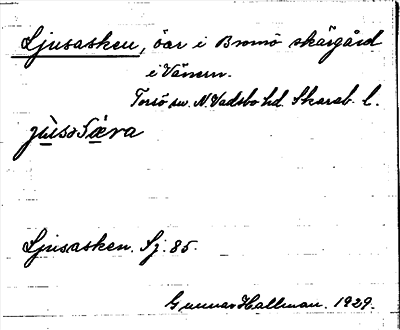 Ljusasken, öar i Bromö skärgård
i Vänern.
Torsö sn. N. Vadsbo hd. Skarab. l.
Ljusasken. Sj. 85.
Gunnar Hallman. 1929.